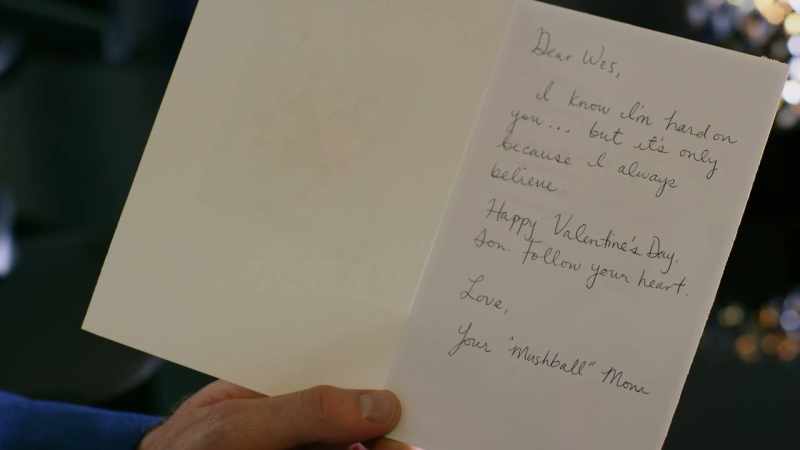 Dear Wes,
I know I'm hard on
you... but it's only
because I always
believe
Happy Valentine's Day,
Son. Follow your heart.
Love,
Your "Mushball" Mom